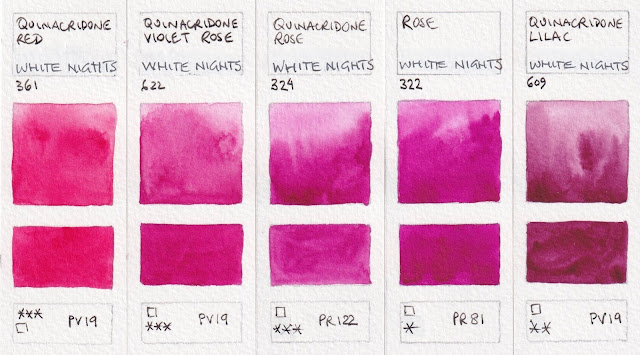 QUINACRIDONE
RED
WHITE NIGHTS
361
*** PV19
QUINACRIDONE
VIOLET ROSE
WHITE NIGHTS
622
*** PV19
QUINACRIDONE
ROSE
WHITE NIGHTS
324
*** PR122
ROSE
WHITE NIGHTS
322
* PR81
QUINACRIDONE
LILAC
WHITE NIGHTS
609
** PV19